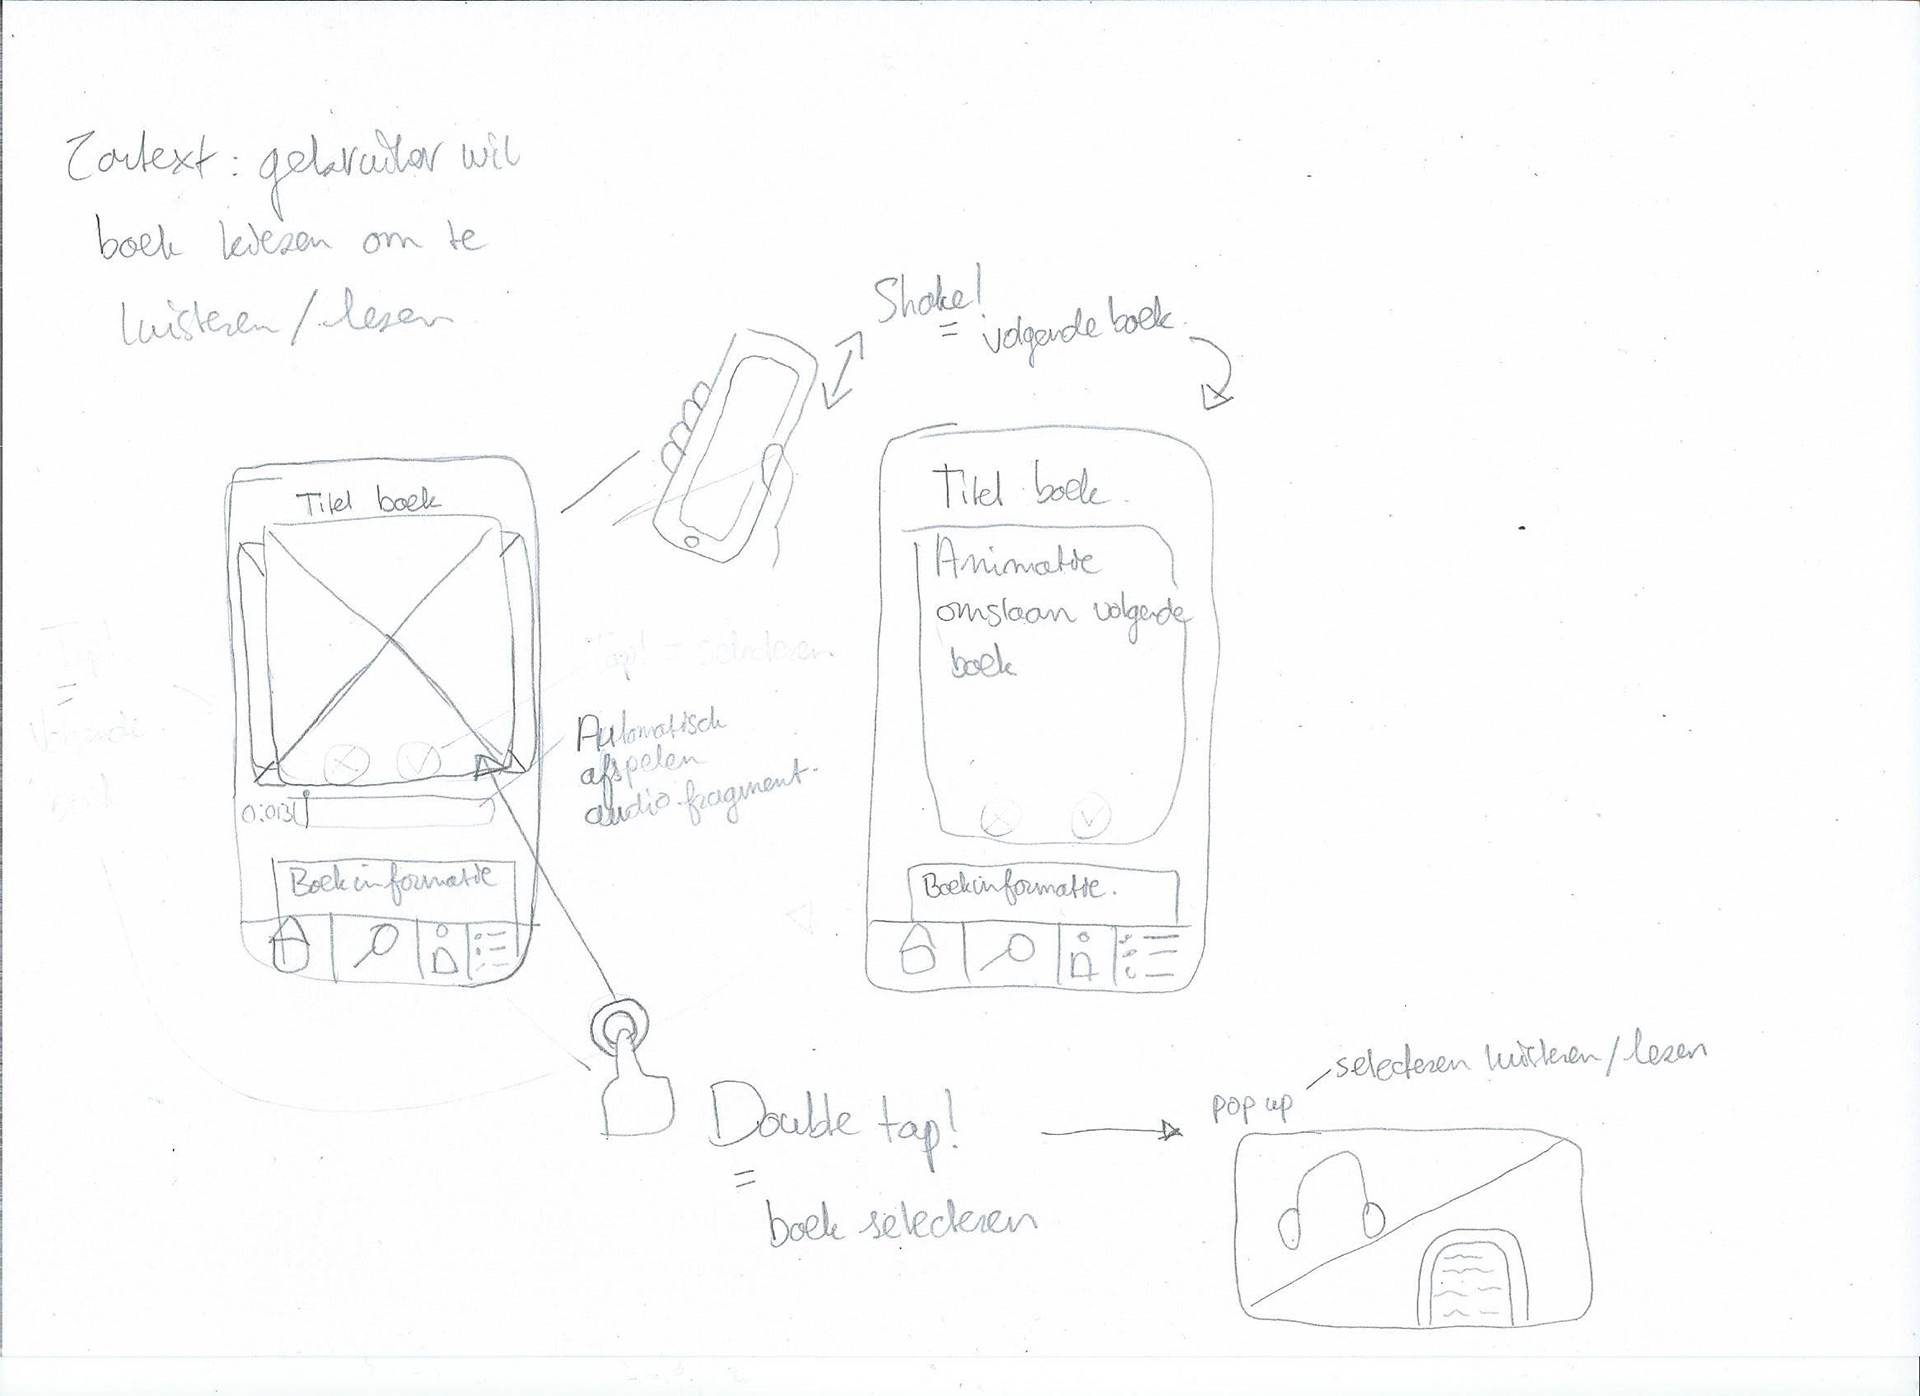 Context: gebruiker wil
boek kiezen om te
luisteren / lezen
Shake!
= volgende boek.
Titel boek
Automatisch
afspelen
audio fragment.
Boekinformatie
Titel boek.
Animatie
omslaan volgende
boek
Boekinformatie.
Tap! = selecteren
Tap!
=
volgende
boek
Double tap!
=
boek selecteren
pop up
selecteren luisteren / lezen